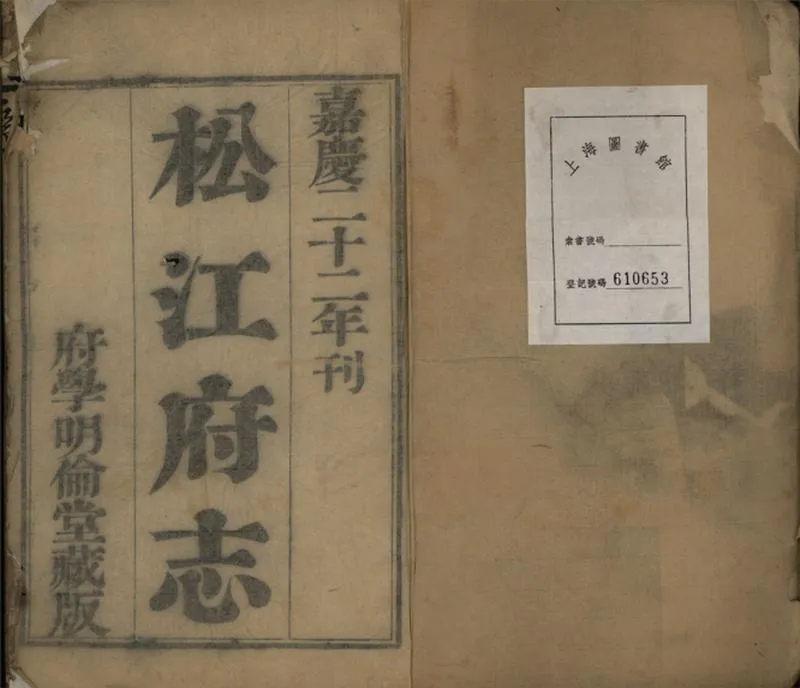 上海圖書館
索書號碼
登記號碼 610653
嘉慶二十二年刊
松江府志
府學明倫堂藏版